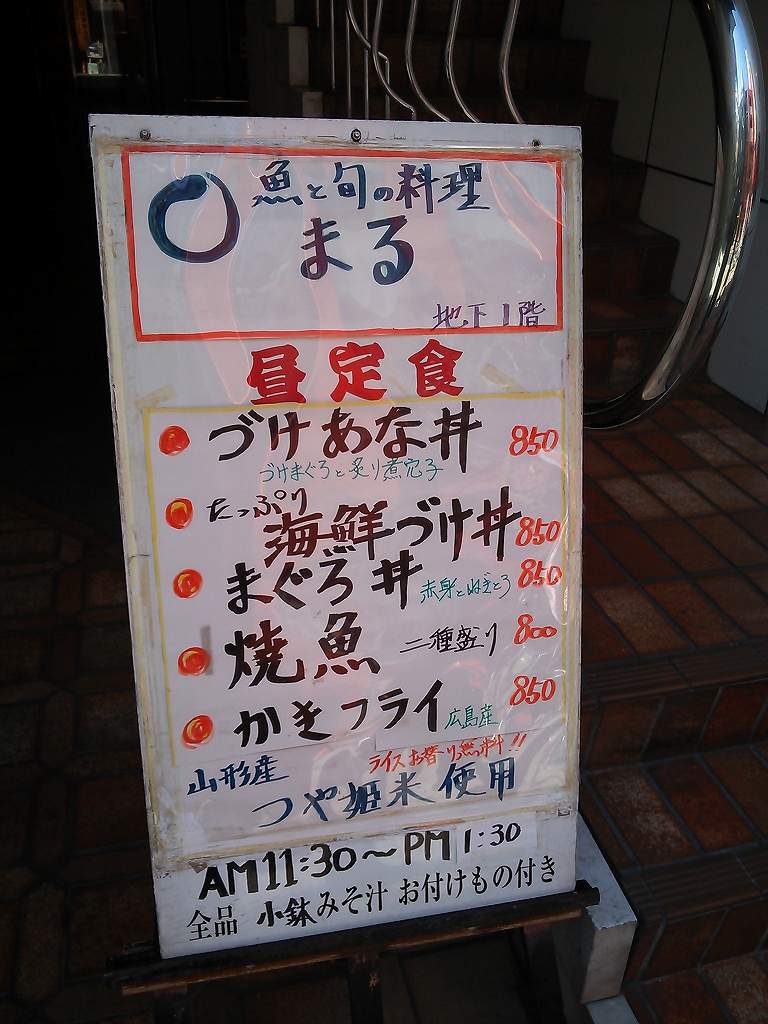 魚と旬の料理
まる
地下1階
昼定食
づけあな丼 850
づけまぐろと炙り煮穴子
たっぷり
海鮮づけ丼 850
まぐろ丼 赤身とねぎとろ 850
焼魚 二種盛り 800
かきフライ 広島産 850
ライスお替り無料!!
山形産
つや姫米使用
AM11:30〜PM1:30
全品 小鉢みそ汁 お付けもの付き